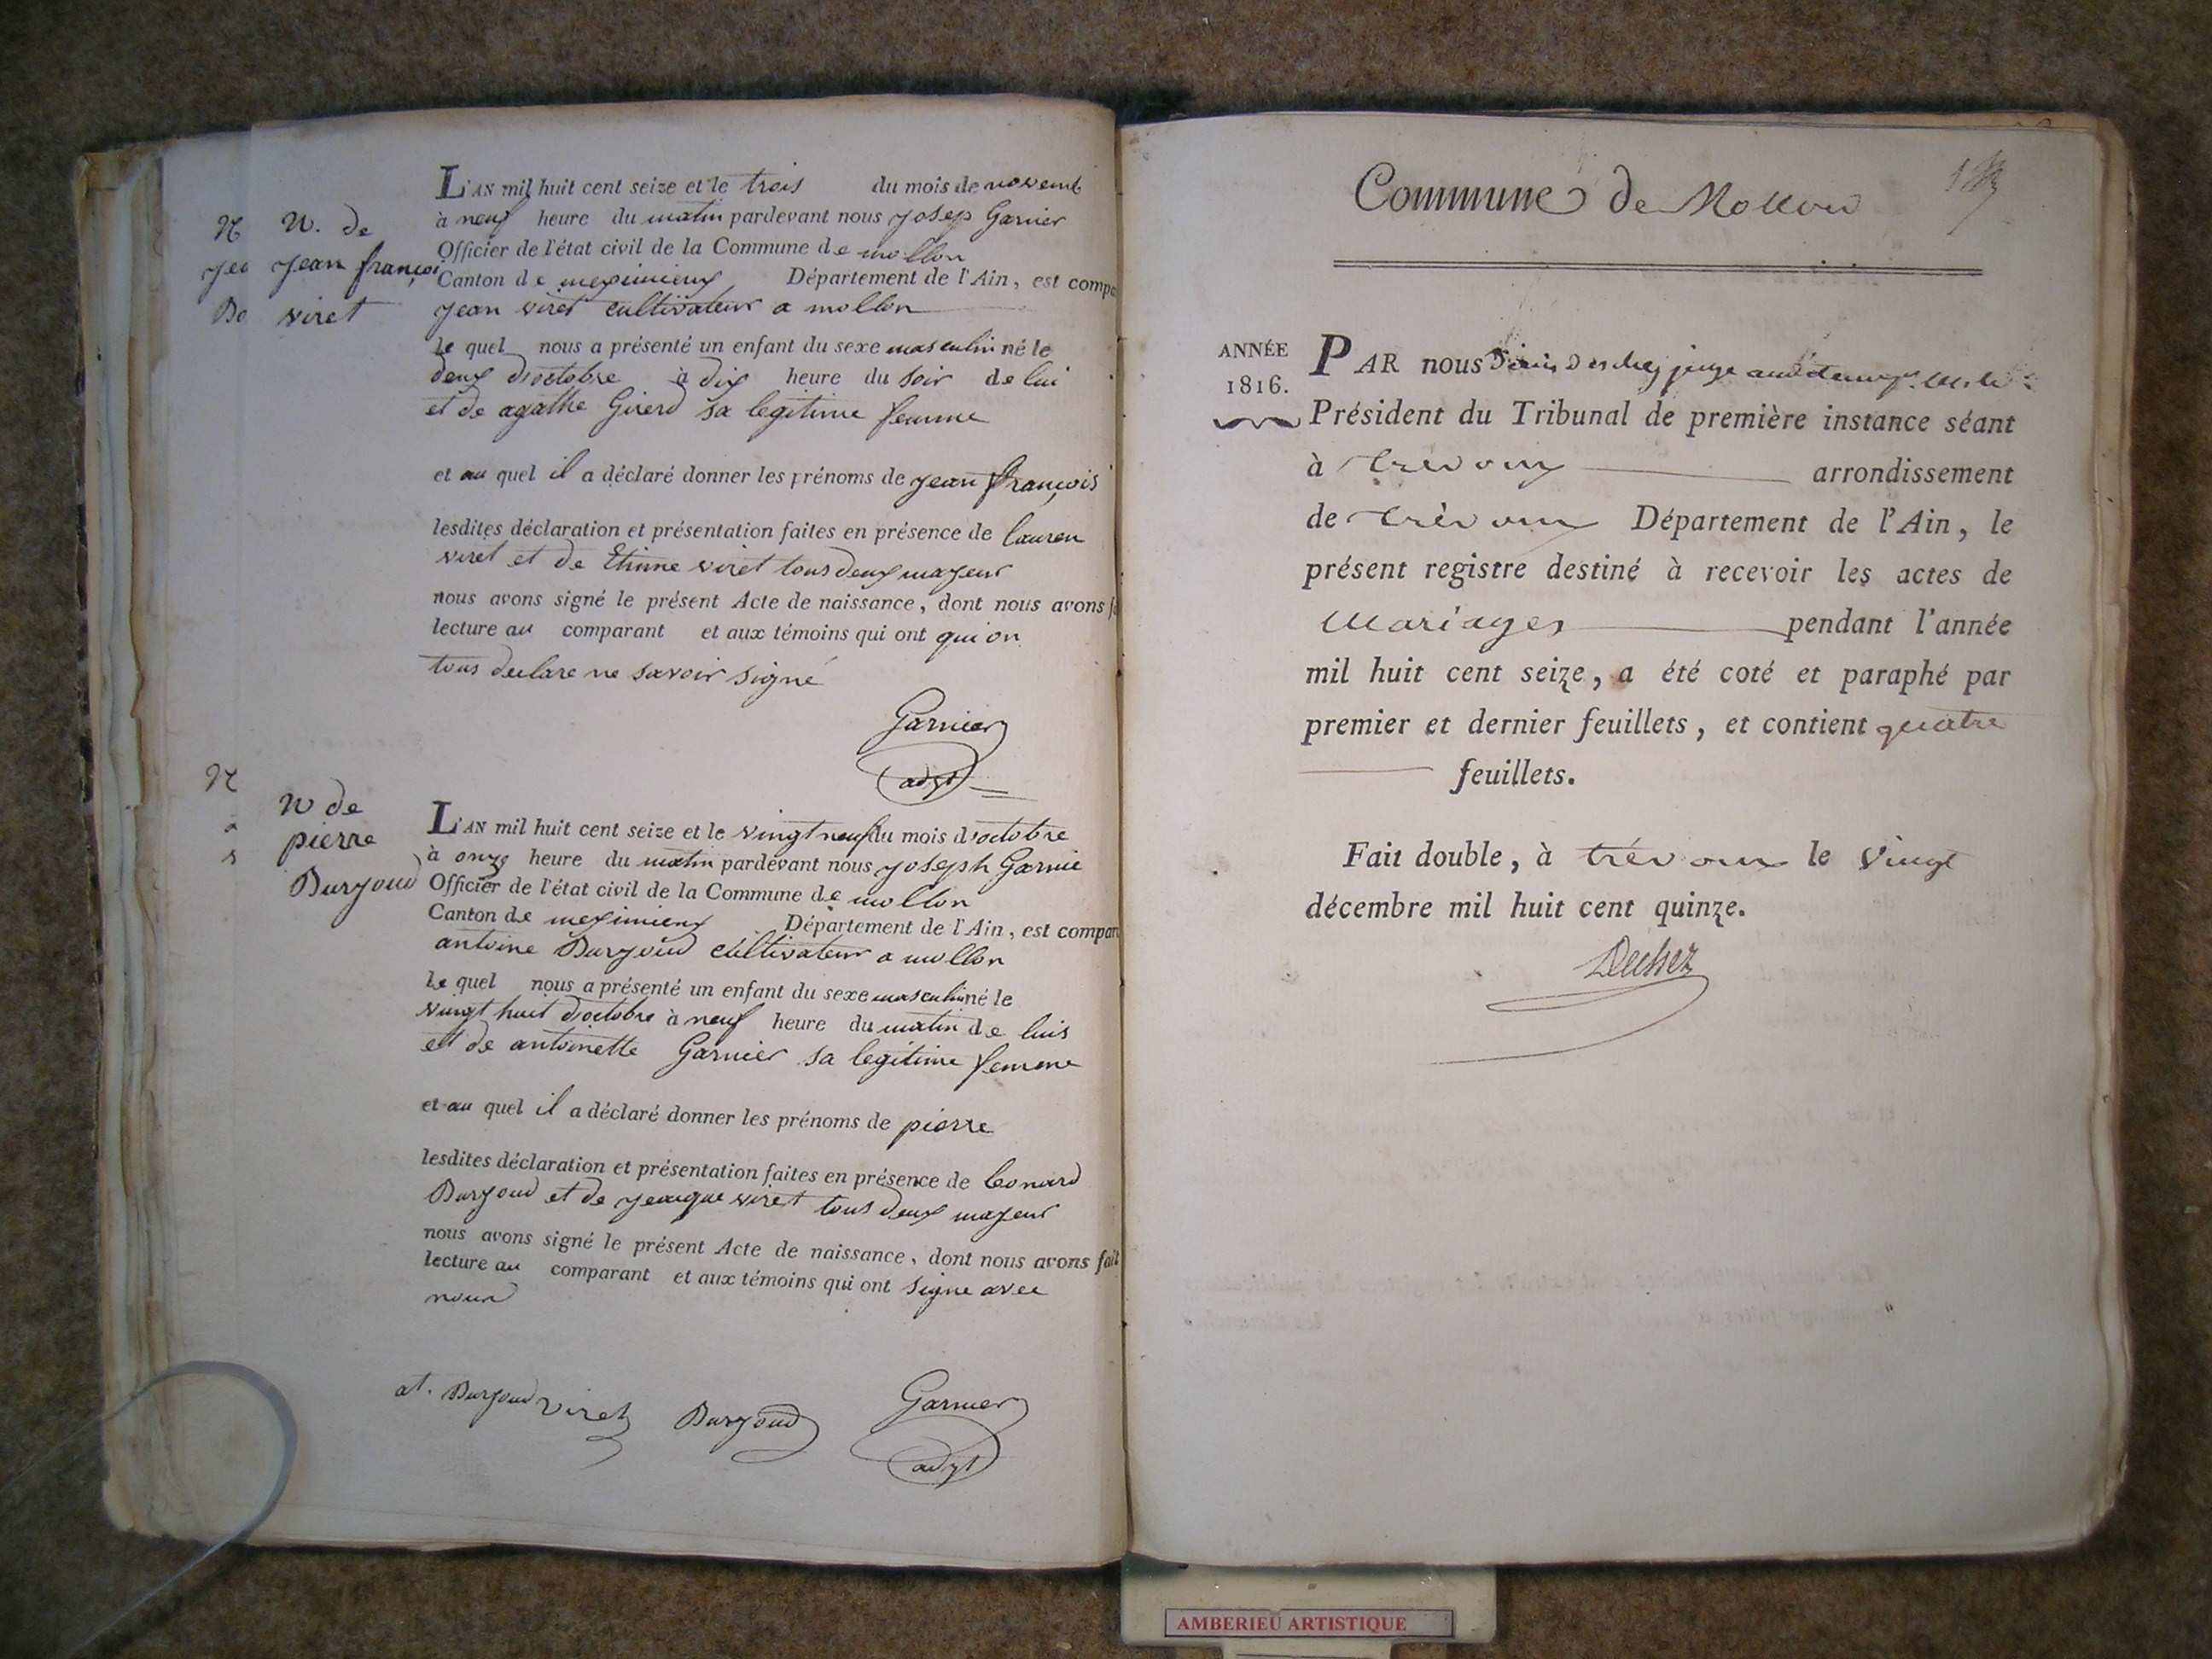 N. de
jean françoi
viret
L'AN mil huit cent seize et le trois du mois de novemb
à neuf heure du matin pardevant nous josep Garnier
Officier de l'état civil de la Commune de mollon
Canton de meximieux Département de l'Ain, est compa
jean viret cultivateur a mollon
le quel nous a présenté un enfant du sexe masculin né le
deux d'octobre à dix heure du soir de lui
et de agathe Girerd sa legitime femme
et au quel il a déclaré donner les prénoms de jean françois
lesdites déclaration et présentation faites en présence de lauren
viret et de Etinne viret tous deux majeur
nous avons signé le présent Acte de naissance, dont nous avons f
lecture au comparant et aux témoins qui ont qui on
tous declare ne savoir signé
Garnier
adjt
N
jea
De
N
N de
pierre
Burjoud
L'AN mil huit cent seize et le vingt neuf du mois d'octobre
à onze heure du matin pardevant nous joseph Garnie
Officier de l'état civil de la Commune de mollon
Canton de meximieux Département de l'Ain, est compar
antoine Burjoud cultivateur a mollon
le quel nous a présenté un enfant du sexe masculin né le
vingt huit d'octobre à neuf heure du matin de luis
et de antoinette Garnier sa legitime femme
et au quel il a déclaré donner les prénoms de pierre
lesdites déclaration et présentation faites en présence de leonard
Burjoud et de jeaques viret tous deux majeur
nous avons signé le présent Acte de naissance, dont nous avons fait
lecture au comparant et aux témoins qui ont signe avec
nous
at. Burjoud viret Burjoud Garnier
adjt
Commune de Mollon
ANNÉE
1816.
PAR nous juge
Président du Tribunal de première instance séant
à trevoux arrondissement
de trévoux Département de l'Ain, le
présent registre destiné à recevoir les actes de
Mariages pendant l'année
mil huit cent seize, a été coté et paraphé par
premier et dernier feuillets, et contient quatre
feuillets.
Fait double, à trévoux le Vingt
décembre mil huit cent quinze.
AMBERIEU ARTISTIQUE